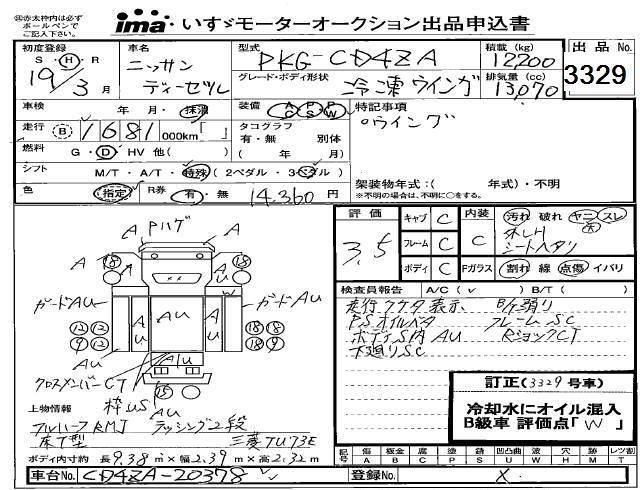 ㊟赤太枠内は必ず
ボールペンで
ご記入下さい。
ima いすゞモーターオークション出品申込書
初度登録 車名 型式 積載(kg) 出品No.
S・H・R ニッサン PKG-CD4ZA 12200
19年 3月 ディーゼル グレード・ボディ形状 冷凍ウイング 排気量(cc) 13,070 3329
車検 年・月・抹消 装備 AC PS PW 特記事項
走行 B 1681 000km「 」 タコグラフ 有・無 別体 。ウイング
燃料 G・D・HV 他( ) ( 年 )
シフト M/T・A/T・特殊(2ペダル・3ペダル) 架装物年式:( 年式)・不明
色 (指定) R券 有・無 14,360円 ※不明の場合は、不明に○をする。
評価 3.5 キャブ C 内装 C 汚れ 破れ ヤニ スレ
フレーム C シートヘタリ
ボディ C Fガラス 割れ 線 点傷 イバリ
A Pハゲ A
A 18 18 A
AU
ガードAU ガードAU
AU AU AU AU
12 12 18 18
9 12 18 9
AU AU AU
クロスメンバーCT 15
枠US
検査員報告 A/C( ✓ ) B/T( )
走行フケタ表示
PSオイルベタ フレームSC
ボディS内AU RショックCT
下廻りSC
訂正(3329号車)
冷却水にオイル混入
B級車 評価点「W」
上物情報
ラッシング2段
床T型 三菱TU73E
ボディ内寸約 長9.38m×幅2.39m×高2.32m
記号 傷 板金 腐 塗 錆 凹凸曲 波 穴 跡 レツ割
A B C P S U W H M T
車台No. CD4ZA-20378 登録No. X